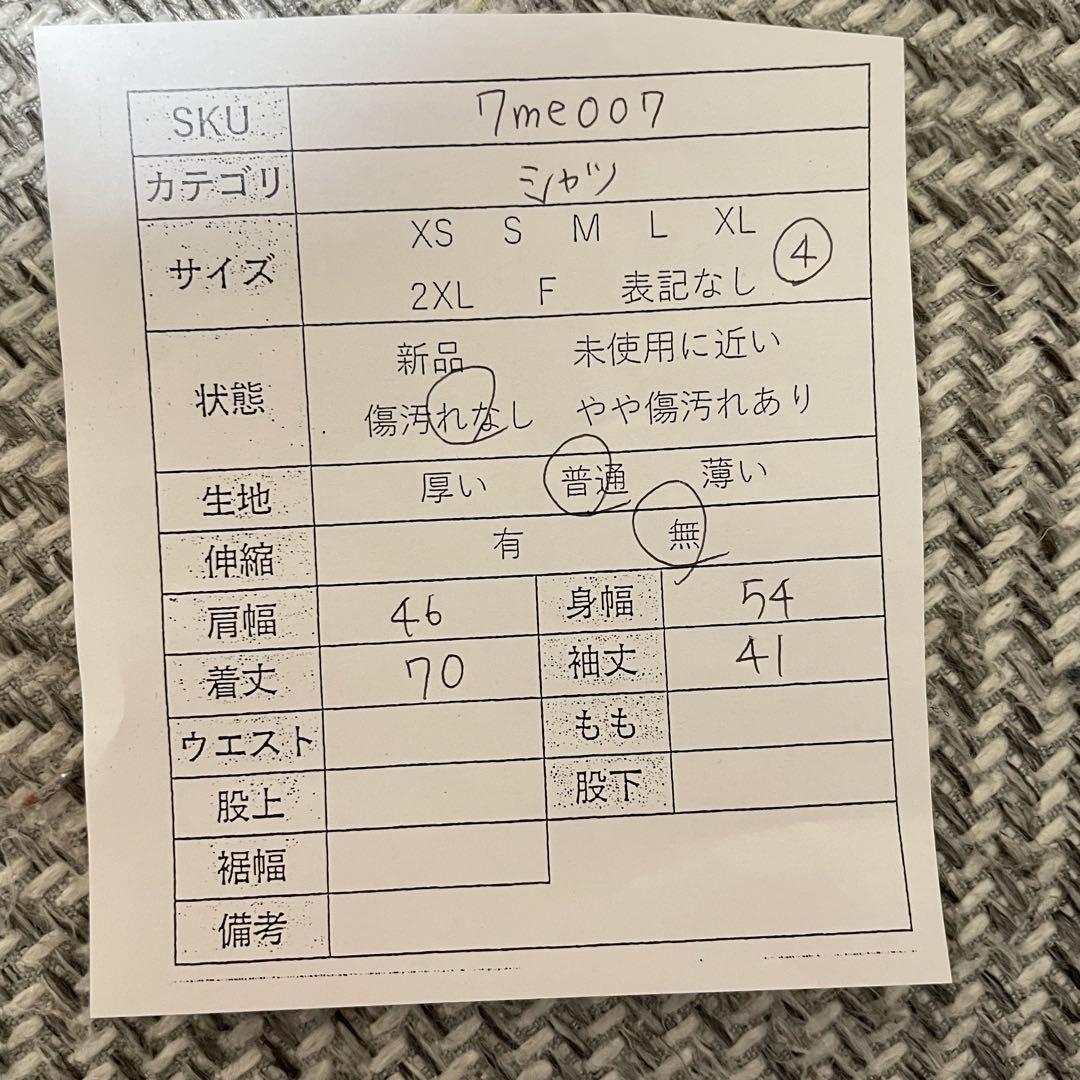 SKU 7me007
カテゴリ シャツ
サイズ XS S M L XL
2XL F 表記なし 4
状態 新品 未使用に近い
傷汚れなし やや傷汚れあり
生地 厚い 普通 薄い
伸縮 有 無
肩幅 46 身幅 54
着丈 70 袖丈 41
ウエスト もも
股上 股下
裾幅
備考